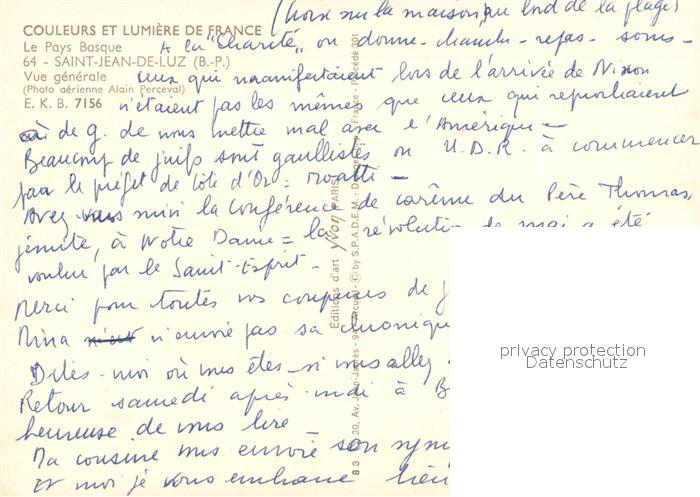 (Croix sur la maison, au bord de la plage)
COULEURS ET LUMIÈRE DE FRANCE
Le Pays Basque
64 - SAINT-JEAN-DE-LUZ (B.-P.)
Vue générale
(Photo aérienne Alain Perceval)
E. K. B. 7156
A la "Charité", on donne - - repas - sous -
Ceux qui manifestaient lors de l'arrivée de Nixon
n'étaient pas les mêmes que ceux qui reprochaient
à de G. de nous mettre mal avec l'Amérique -
Beaucoup de juifs sont gaullistes ou U.D.R. à commencer
par le préfet de Côte d'Or =
Avez-vous suivi la Conférence de carême du Père Thomas,
jésuite, à Notre Dame = la révolution de mai a été
voulue par le Saint-Esprit -
Merci pour toutes vos coupures de j
Nina n'envoie pas sa chroniqu
Dites-moi où vous êtes - si vous allez
Retour samedi après-midi à B
heureuse de vous lire -
Ma cousine vous envoie son sym
Et moi je vous embrasse bien
Editions d'art yvon PARIS
30, Av. Jean-Jaurès - 94-Arcueil - © by S.P.A.D.E.M. - France - Procédé 301
privacy protection
Datenschutz